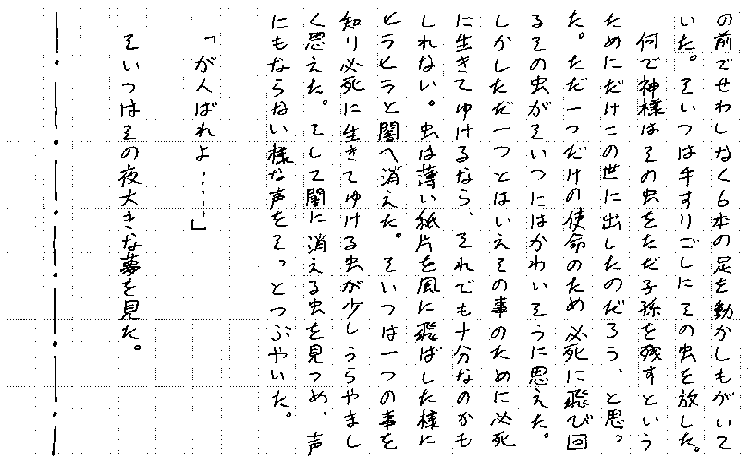 の前でせわしなく6本の足を動かしもがいて
いた。そいつは手すりごしにその虫を放した。
何で神様はその虫をただ子孫を残すという
ためにだけこの世に出したのだろう、と思っ
た。ただ一つだけの使命のため必死に飛び回
るその虫がそいつにはかわいそうに思えた。
しかしただ一つとはいえその事のために必死
に生きてゆけるなら、それでも十分なのかも
しれない。虫は薄い紙片を風に飛ばした様に
ヒラヒラと闇へ消えた。そいつは一つの事を
知り必死に生きてゆける虫が少しうらやまし
く思えた。そして闇に消える虫を見つめ、声
にもならない様な声をそっとつぶやいた。
「がんばれよ……」
そいつはその夜大きな夢を見た。